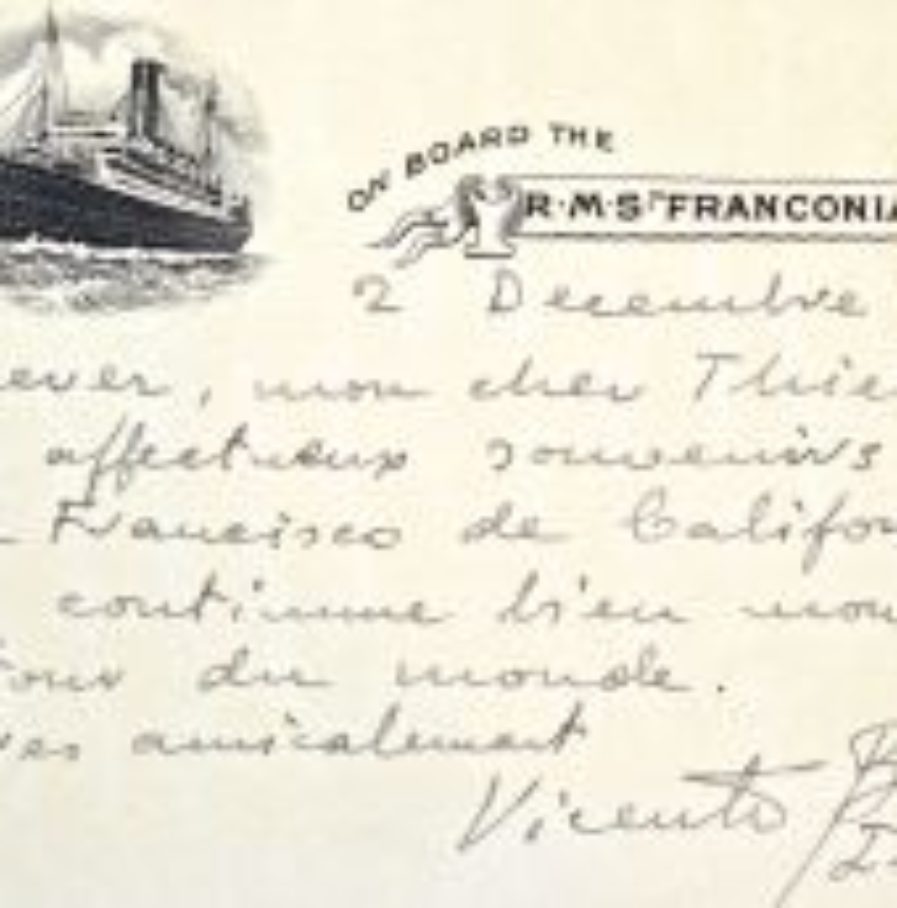 ON BOARD THE
R·M·S "FRANCONIA
2 Decembre
ever, mon cher Thie
affectueux souvenirs
Francisco de Califor
continue bien mon
tour du monde.
res amicalement
Vicente